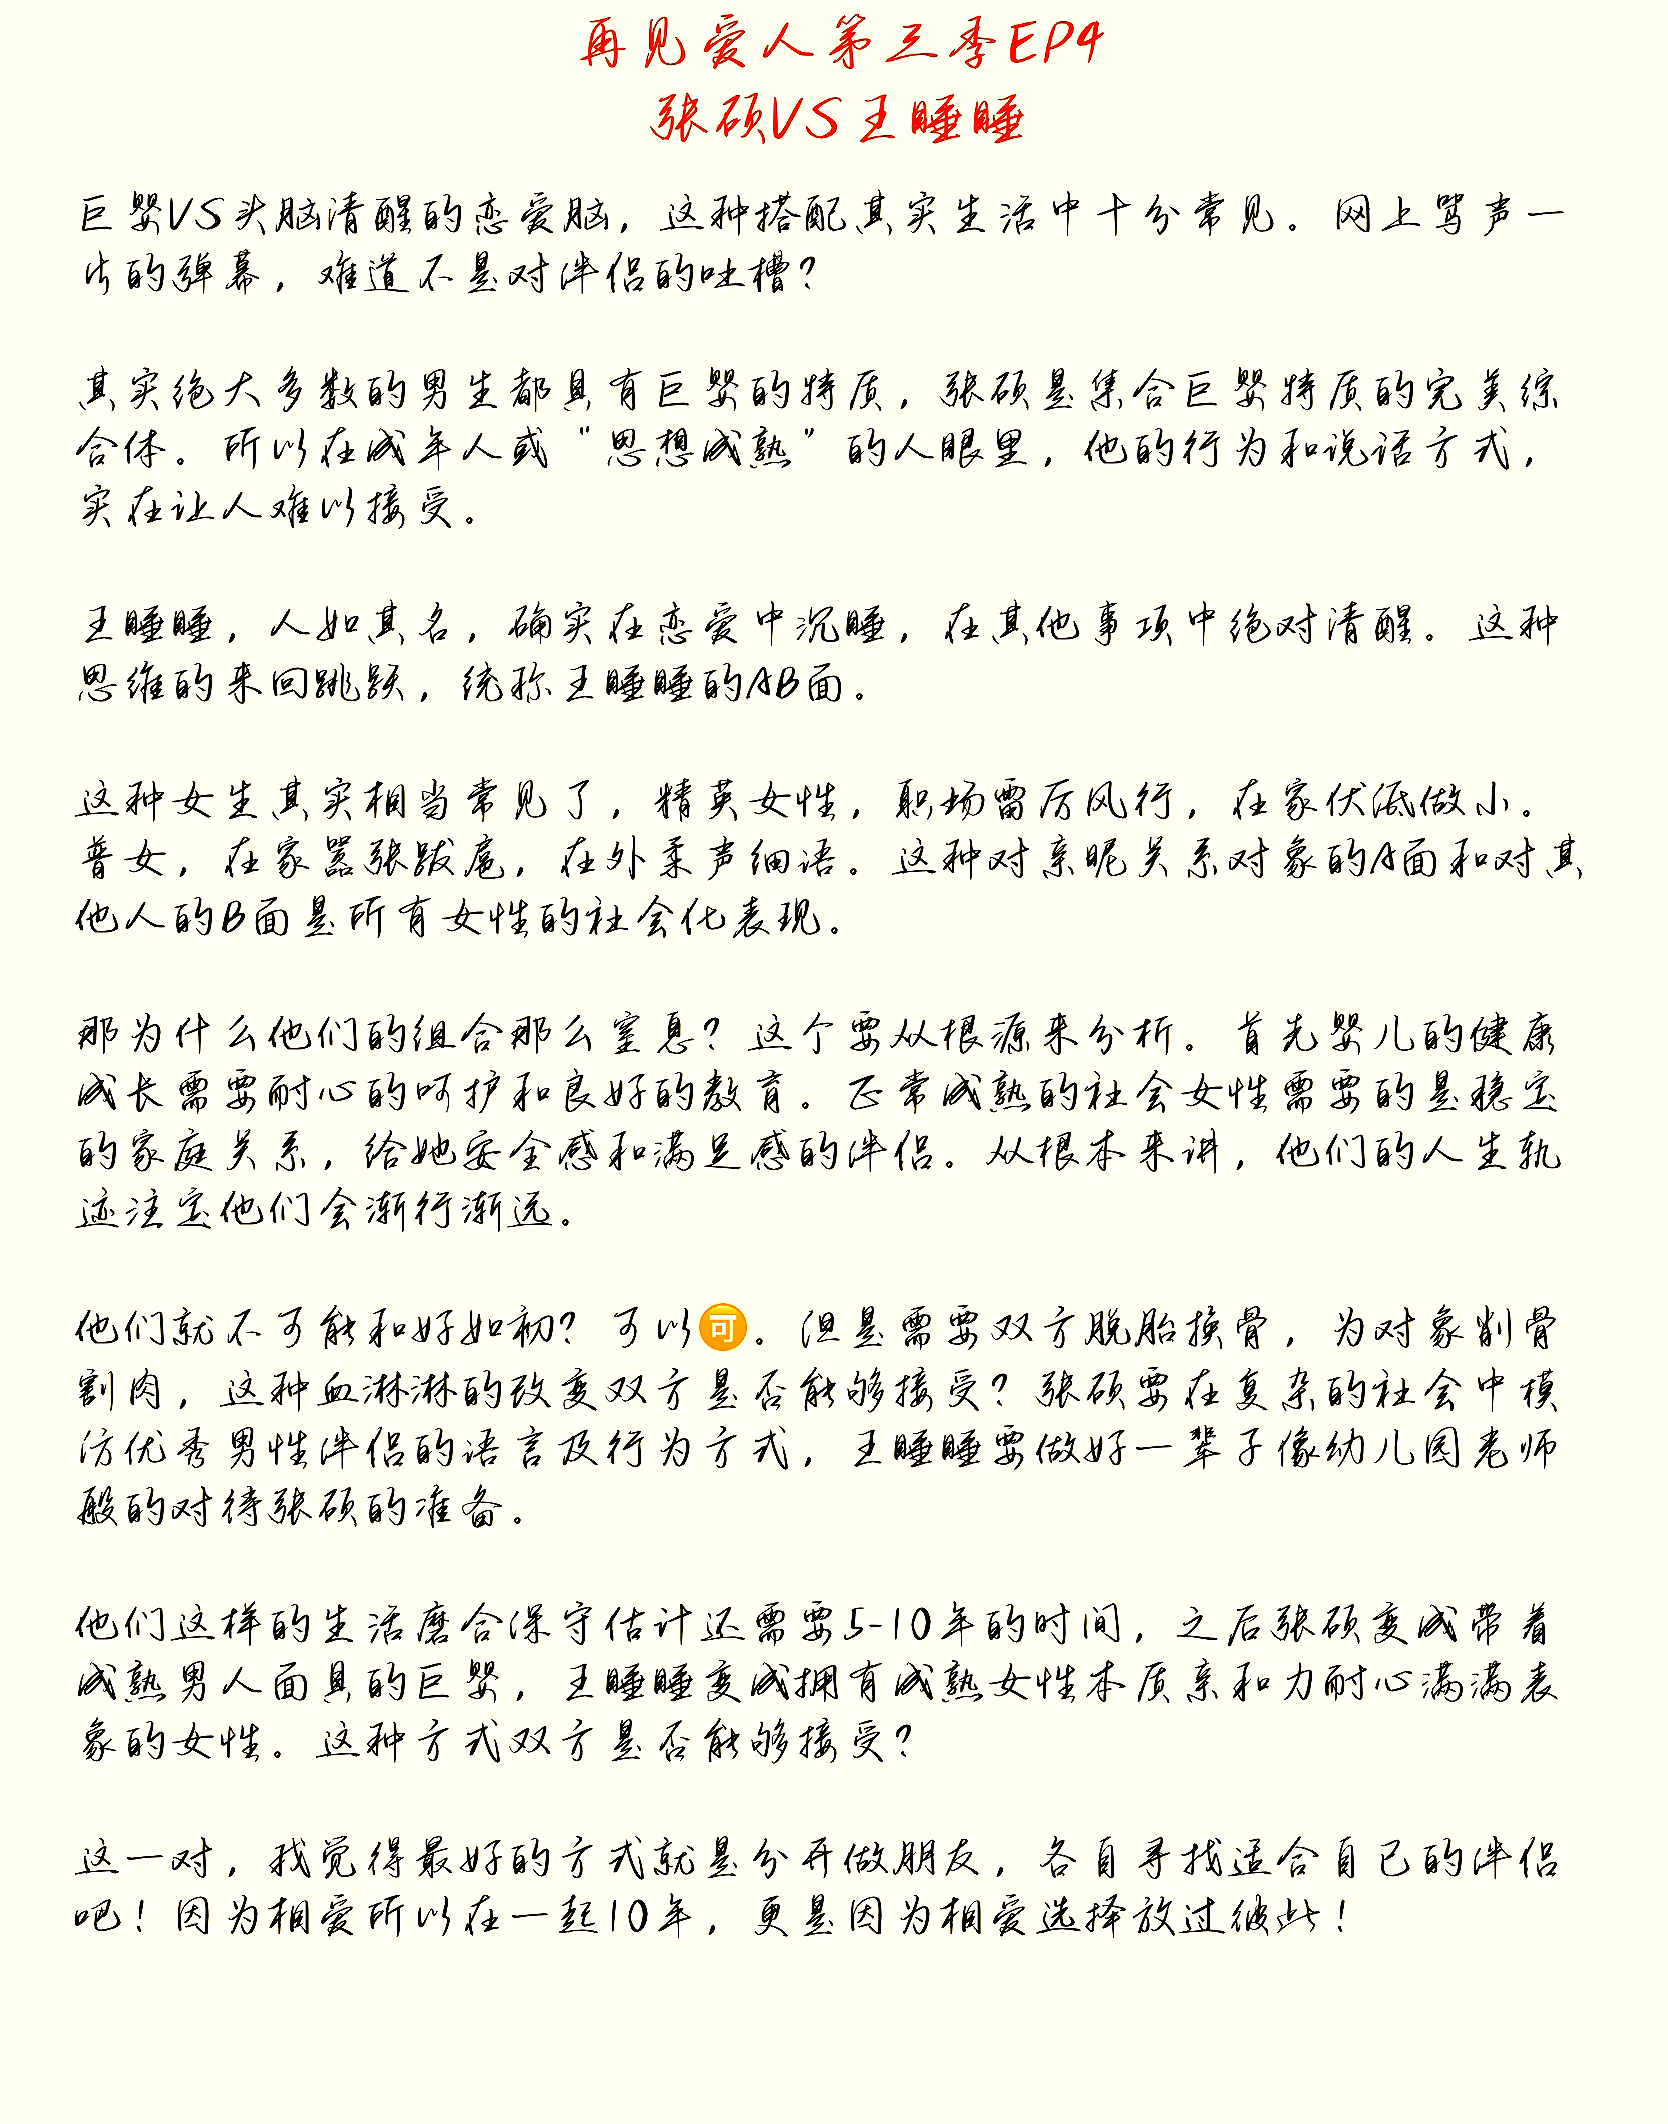 再见爱人第三季EP4
张硕VS王睡睡
巨婴VS头脑清醒的恋爱脑，这种搭配其实生活中十分常见。网上骂声一
片的弹幕，难道不是对伴侣的吐槽？
其实绝大多数的男生都具有巨婴的特质，张硕是集合巨婴特质的完美综
合体。所以在成年人或“思想成熟”的人眼里，他的行为和说话方式，
实在让人难以接受。
王睡睡，人如其名，确实在恋爱中沉睡，在其他事项中绝对清醒。这种
思维的来回跳跃，统称王睡睡的AB面。
这种女生其实相当常见了，精英女性，职场雷厉风行，在家伏低做小。
普女，在家嚣张跋扈，在外柔声细语。这种对亲昵关系对象的A面和对其
他人的B面是所有女性的社会化表现。
那为什么他们的组合那么窒息？这个要从根源来分析。首先婴儿的健康
成长需要耐心的呵护和良好的教育。正常成熟的社会女性需要的是稳定
的家庭关系，给她安全感和满足感的伴侣。从根本来讲，他们的人生轨
迹注定他们会渐行渐远。
他们就不可能和好如初？可以🉑。但是需要双方脱胎换骨，为对象削骨
割肉，这种血淋淋的改变双方是否能够接受？张硕要在复杂的社会中模
仿优秀男性伴侣的语言及行为方式，王睡睡要做好一辈子像幼儿园老师
般的对待张硕的准备。
他们这样的生活磨合保守估计还需要5-10年的时间，之后张硕变成带着
成熟男人面具的巨婴，王睡睡变成拥有成熟女性本质亲和力耐心满满表
象的女性。这种方式双方是否能够接受？
这一对，我觉得最好的方式就是分开做朋友，各自寻找适合自己的伴侣
吧！因为相爱所以在一起10年，更是因为相爱选择放过彼此！